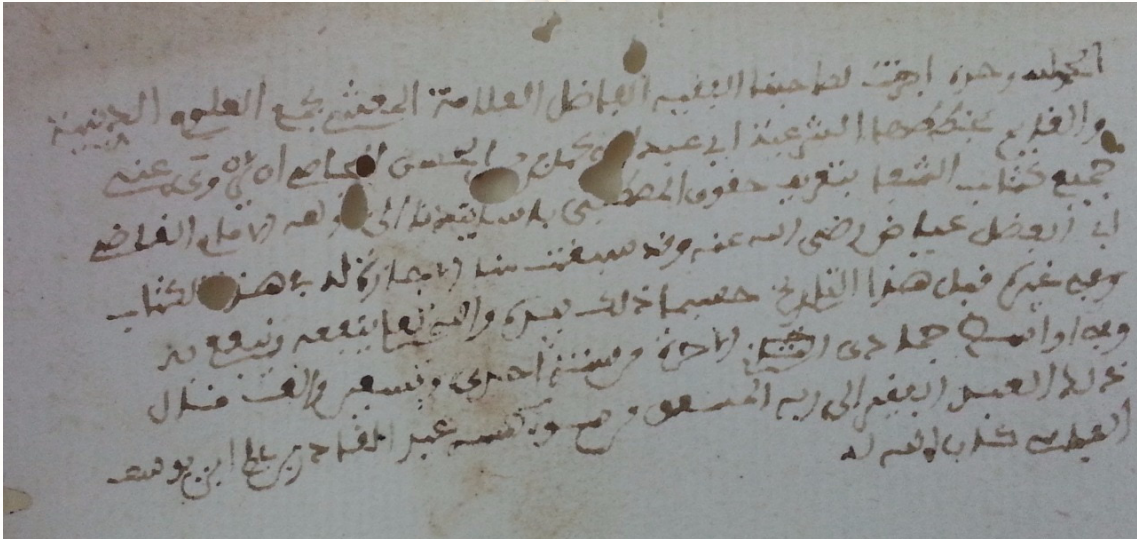 الحمد لله وحده اجزت لصاحبنا الفقيه الفاضل العلامة المعتني بجمع العلوم الدينية
والقيام الشرعية ابي عبد الله محمد بن الحسني
جميع كتاب الشفا بتعريف حقوق المصطفى الى الامام القاضي
ابي الفضل عياض رضي الله عنه وقد سبقت منا الاجازة له في هذا الكتاب
وفي غيره قبل هذا التاريخ حسبما ذلك بيده والله تعالى ينفعه وينفع به
وفي اواسط جمادى الاخرة من سنة احدى وتسعين والف قال
ذلك العبد الفقير الى ربه عبد القادر بن علي ابن يوسف
الفاسي كان الله له